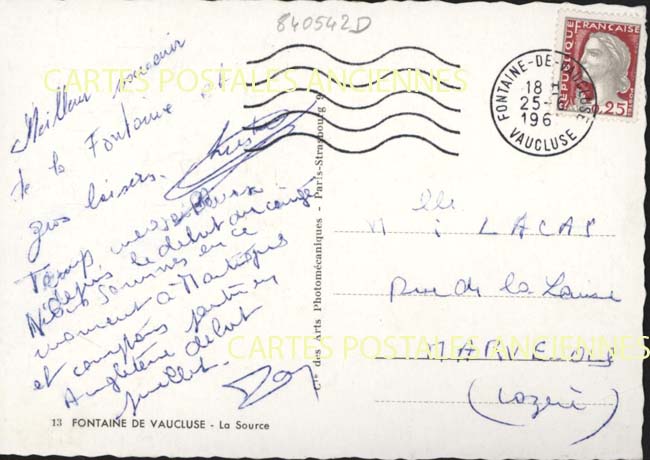 840542D
CARTES POSTALES ANCIENNES
Meilleur souvenir
de la Fontaine et
gros baisers.
Temps merveilleux
depuis le début du congé
Nous sommes en ce
moment à Martigues
et comptons partir en
Angleterre début
juillet.
13 FONTAINE DE VAUCLUSE - La Source
Cie des Arts Photomécaniques - Paris-Strasbourg
REPUBLIQUE FRANÇAISE
0,25
POSTES
FONTAINE-DE-VAUCLUSE
18 H
25-6
196
VAUCLUSE
Mlle LACAS
Rue de la
CARTES POSTALES ANCIENNES
MARVEJOLS
(Lozère)